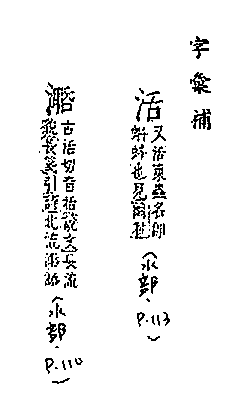 字彙補
活 又活東蟲名即
蝌蚪也見爾雅
(水部, P.113
古活切音括說文長流
引詩北流
(水部, P.110)